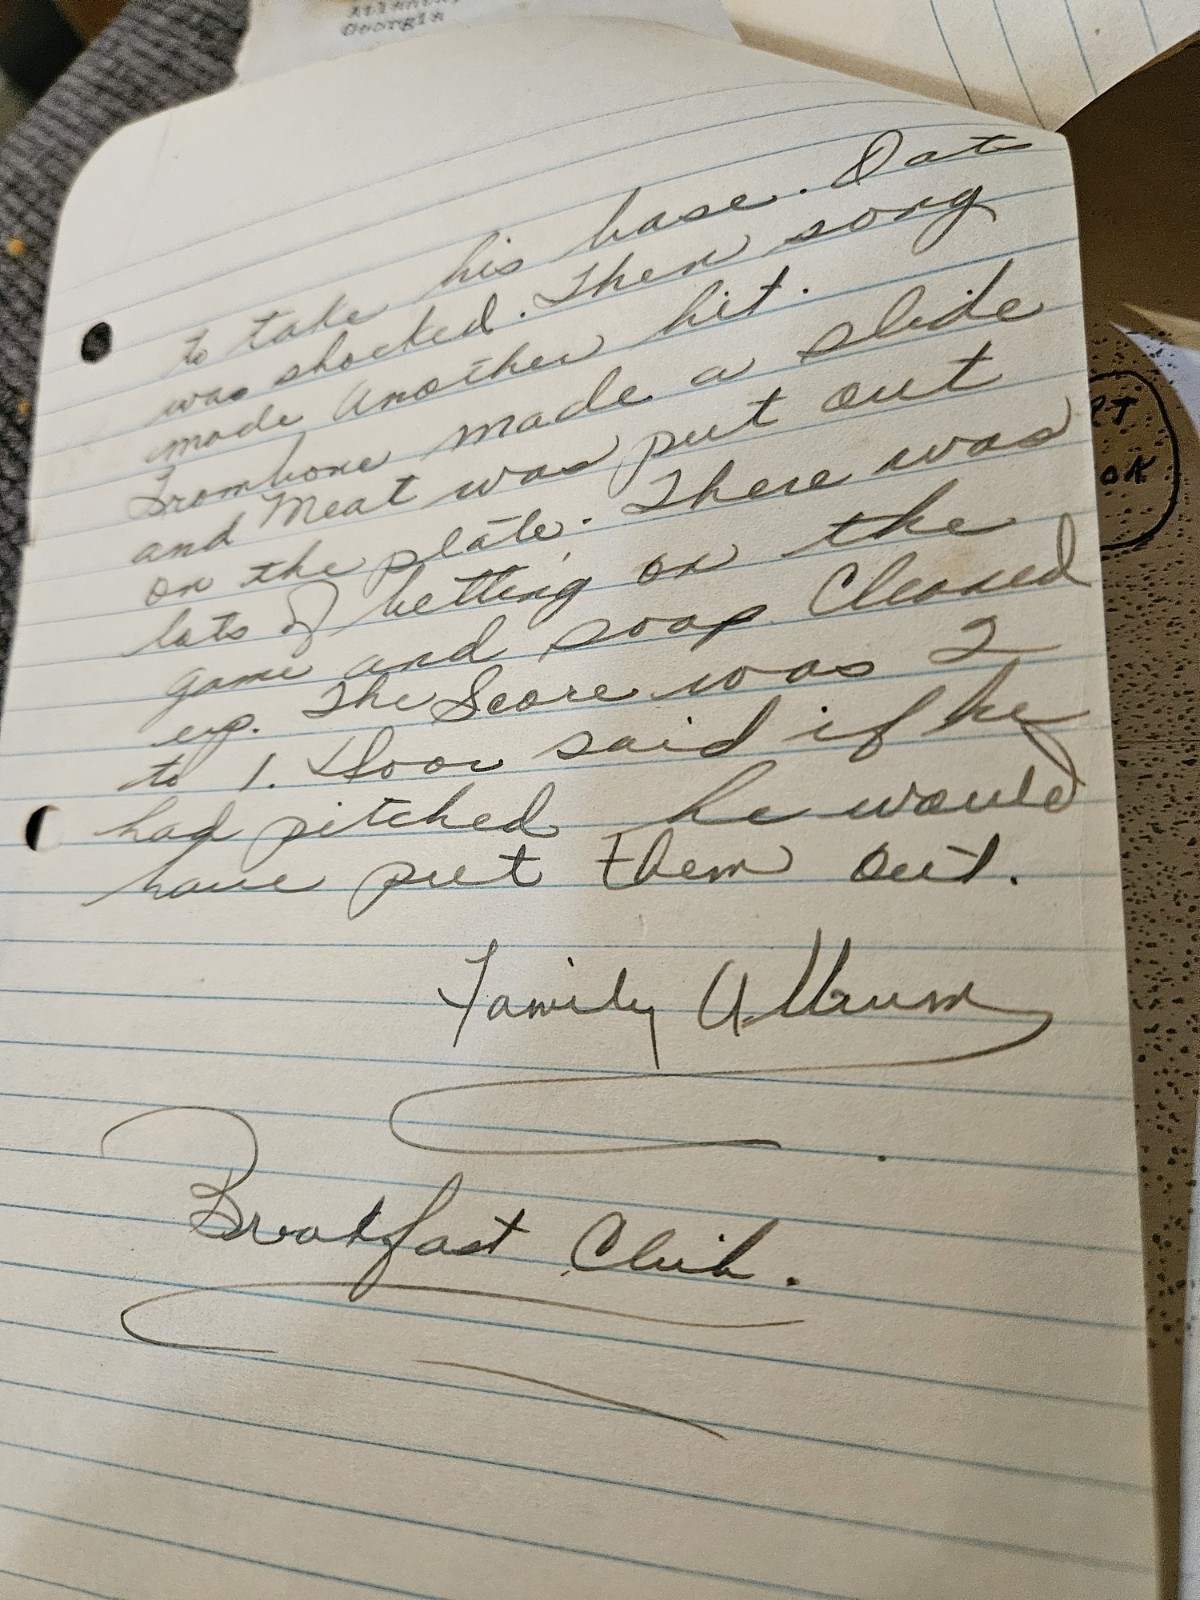 Georgia
to take his base. Oats
was shocked. Then song
made Another hit.
Trombone made a slide
and Meat was put out
on the plate. There was
lots of betting on the
game and soap Cleaned
up. The Score was 2
to 1. Door said if he
had pitched he would
have put them out.
Family Album
Breakfast Club.
OK